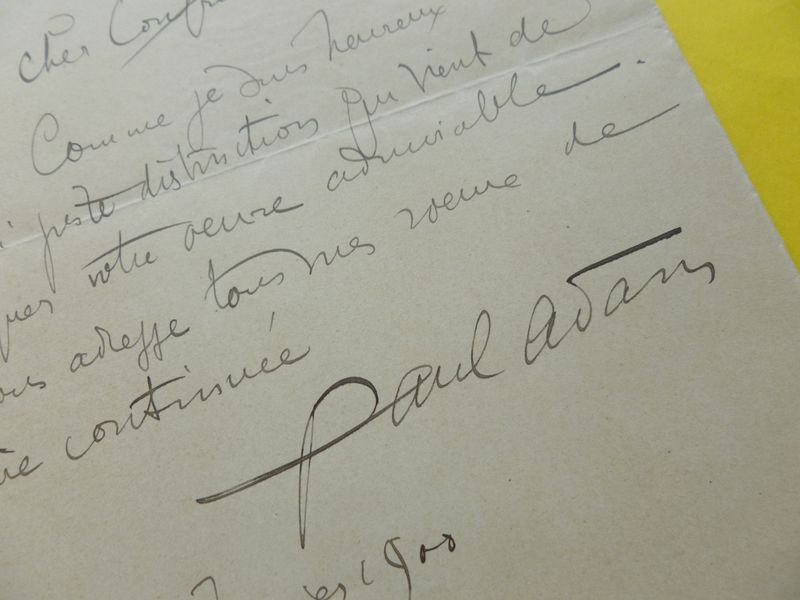 cher Confr
Comme je suis heureux
juste distinction qui vient de
votre œuvre admirable.
adresse tous mes voeux de
continuée
Paul Adam
1900